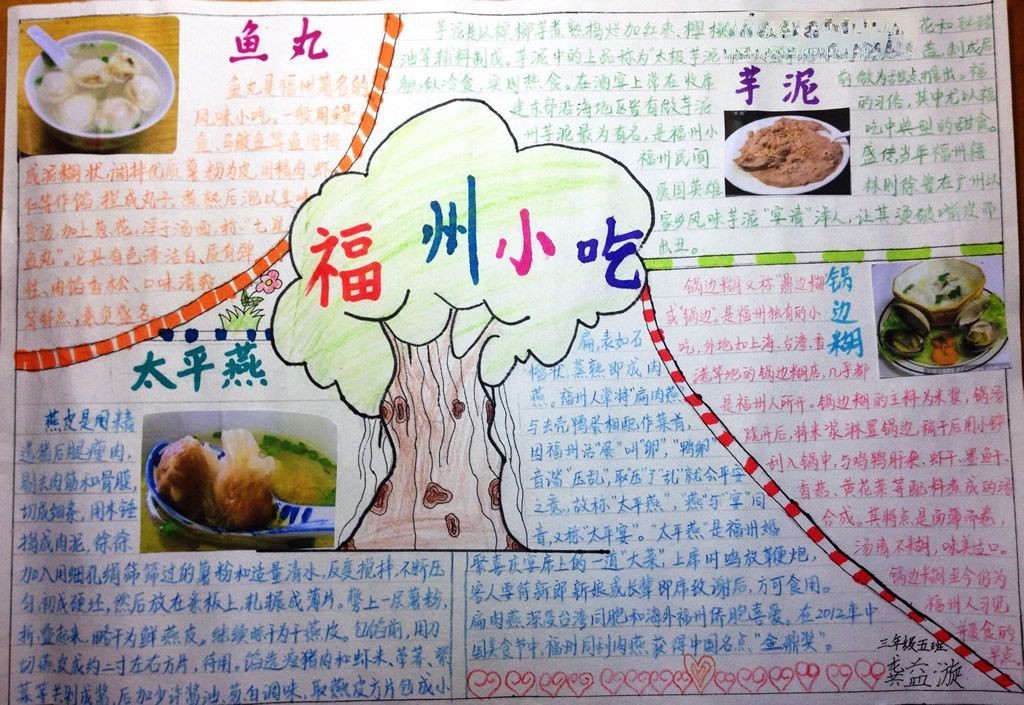 福州小吃
鱼丸
鱼丸是福州著名的
风味小吃。一般用鳗
鱼、马鲛鱼等鱼肉捣
成泥糊状,调拌优质薯粉为皮,用精肉、虾
仁等作馅,捏成丸子,煮熟后泡以美味
高汤,加上葱花,浮于汤面,称"七星
鱼丸"。它具有色泽洁白、质有弹
性、肉馅香松、口味清爽
等特点,素负盛名。
芋泥
芋泥是以槟榔芋煮熟捣烂加红枣、樱桃
花和
油等辅料制成。芋泥中的上品称为"太极芋泥
蒸,制成后
貌似冷食,实则热食。在酒宴上常在收席
前做为甜点推出。福
建东南沿海地区皆有做芋泥
的习俗,其中尤以福
州芋泥最为有名,是福州小
吃中典型的甜食。
福州民间
盛传当年福州籍
爱国英雄
林则徐曾在广州以
家乡风味芋泥"宴请"洋人,让其烫破嘴皮而
出丑。
锅边糊
锅边糊又称"鼎边糊"
或"锅边",是福州独有的小
吃,外地如上海、台湾、香
港等地的锅边糊店,几乎都
是福州人所开。锅边糊的主料为米浆,锅汤
烧开后,将米浆淋置锅边,稍干后用小铲
刮入锅中,与鸡鸭肝杂、虾干、墨鱼干、
香菇、黄花菜等配料煮成的汤
合成。其特点是面薄而卷,
汤清不糊,味美适口。
锅边糊至今仍为
福州人习见
并爱食的
早点。
太平燕
燕皮是用精
选猪后腿瘦肉,
剔去肉筋和骨膜,
切成细条,用木锤
捣成肉泥,徐徐
加入用细孔绢筛筛过的薯粉和适量清水,反复搅拌,不断压
匀,制成硬坯,然后放在条板上,轧辗成薄片。劈上一层薯粉,
折叠起来,晾干为鲜燕皮。继续晾干为干燕皮。包馅前,用刀
切燕皮成约二寸左右方片,待用。馅选瘦猪肉和虾米、荸荠、紫
菜等共剁成酱,后加少许酱油、葱白调味,取燕皮方片包成小
扁,表如石
榴状,蒸熟即成肉
燕。福州人常将"扁肉燕"
与去壳鸭蛋相配作菜肴,
因福州话"蛋"叫"卵","鸭卵"
音谐"压乱",取"压了乱"就会平安
之意,故称"太平燕","燕"与"宴"同
音,又称"太平宴"。"太平燕"是福州婚
娶喜庆宴席上的一道"大菜",上席时鸣放鞭炮,
客人要待新郎新娘或长辈即席致谢后,方可食用。
扁肉燕深受台湾同胞和海外福州侨胞喜爱。在2012年中
国美食节中,福州同利肉燕获得中国名点"金鼎奖"。
三年级五班
龚益漩